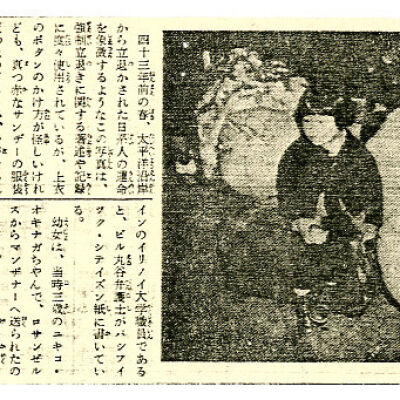 四十三年前の春、太平洋沿岸
から立退かされた日系人の運命
を象徴するようなこの写真は、
強制立退きに関する著述や記録
に度々使用されているが、上衣
のボタンのかけ方が怪しいけれ
ども、真っ赤なサンデーの服装
インのイリノイ大学職員である
と、ビル丸谷弁護士がパシフィ
ック・シテイズン紙に書いてい
る。
幼女は、当時三歳のユキコ・
オキナガちゃんで、ロサンゼル
スからマンザナーへ送られたの